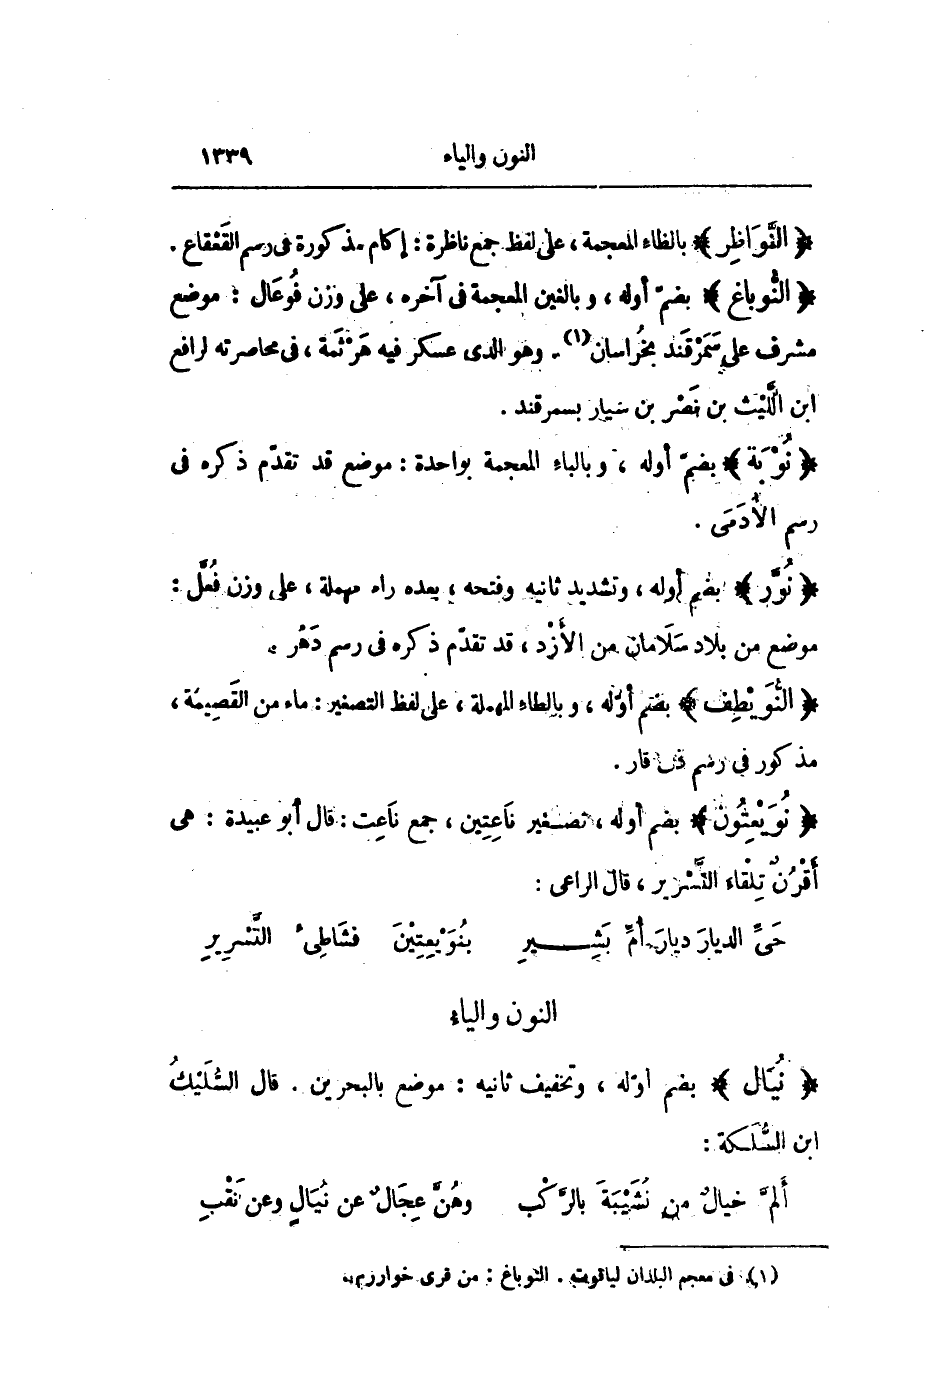 النون والياء ١٣٣٩
﴿ النَّوَاظِر ﴾ بالظاء المعجمة ، على لفظ جمع ناظرة : إكام مذكورة فى رسم القَعْقاع .
﴿ النُّوباغ ﴾ بضمّ أوله ، وبالغين المعجمة فى آخره ، على وزن فُوعَال : موضع
مشرف على سَمَرْقَند بخُراسان(١) . وهو الذى عسكر فيه هَرْثَمة ، فى محاصرته لرافع
ابن اللَّيْث بن نَصْر بن سيار بسمرقند .
﴿ نُوْبَة ﴾ بضمّ أوله ، وبالباء المعجمة بواحدة : موضع قد تقدّم ذكره فى
رسم الأُدَمَى .
﴿ نُوَّر ﴾ بضم أوله ، وتشديد ثانيه وفتحه ، بعده راء مهملة ، على وزن فُعَّل :
موضع من بلاد سَلَامان من الأَزْد ، قد تقدّم ذكره فى رسم دَهْر .
﴿ النُّوَيْطِف ﴾ بضم أوّله ، وبالطاء المهملة ، على لفظ التصغير : ماء من القَصِيمَة ،
مذكور فى رسم قار .
﴿ نُوَيْعِتُون ﴾ بضم أوله ، تصغير نَاعِتِين ، جمع نَاعِت : قال أبو عبيدة : هى
أَقْرُنٌ تِلْقاء التَّسْرير ، قال الراعى :
حَىِّ الديارَ ديارَ أُمِّ بَشِيرِ بنُوَيْعِتِيْنَ فشَاطِئِ التَّسْرِيرِ
النون والياء
﴿ نُيَال ﴾ بضم أوّله ، وتخفيف ثانيه : موضع بالبحرين . قال السُّلَيْكُ
ابن السُّلَكة :
أَلمَّ خيالٌ من نُشَيْبَةَ بالرَّكْب وهُنَّ عِجَالٌ عن نُيَالٍ وعن نَقْبِ
(١) فى معجم البلدان لياقوت . النوباغ : من قرى خوارزم .